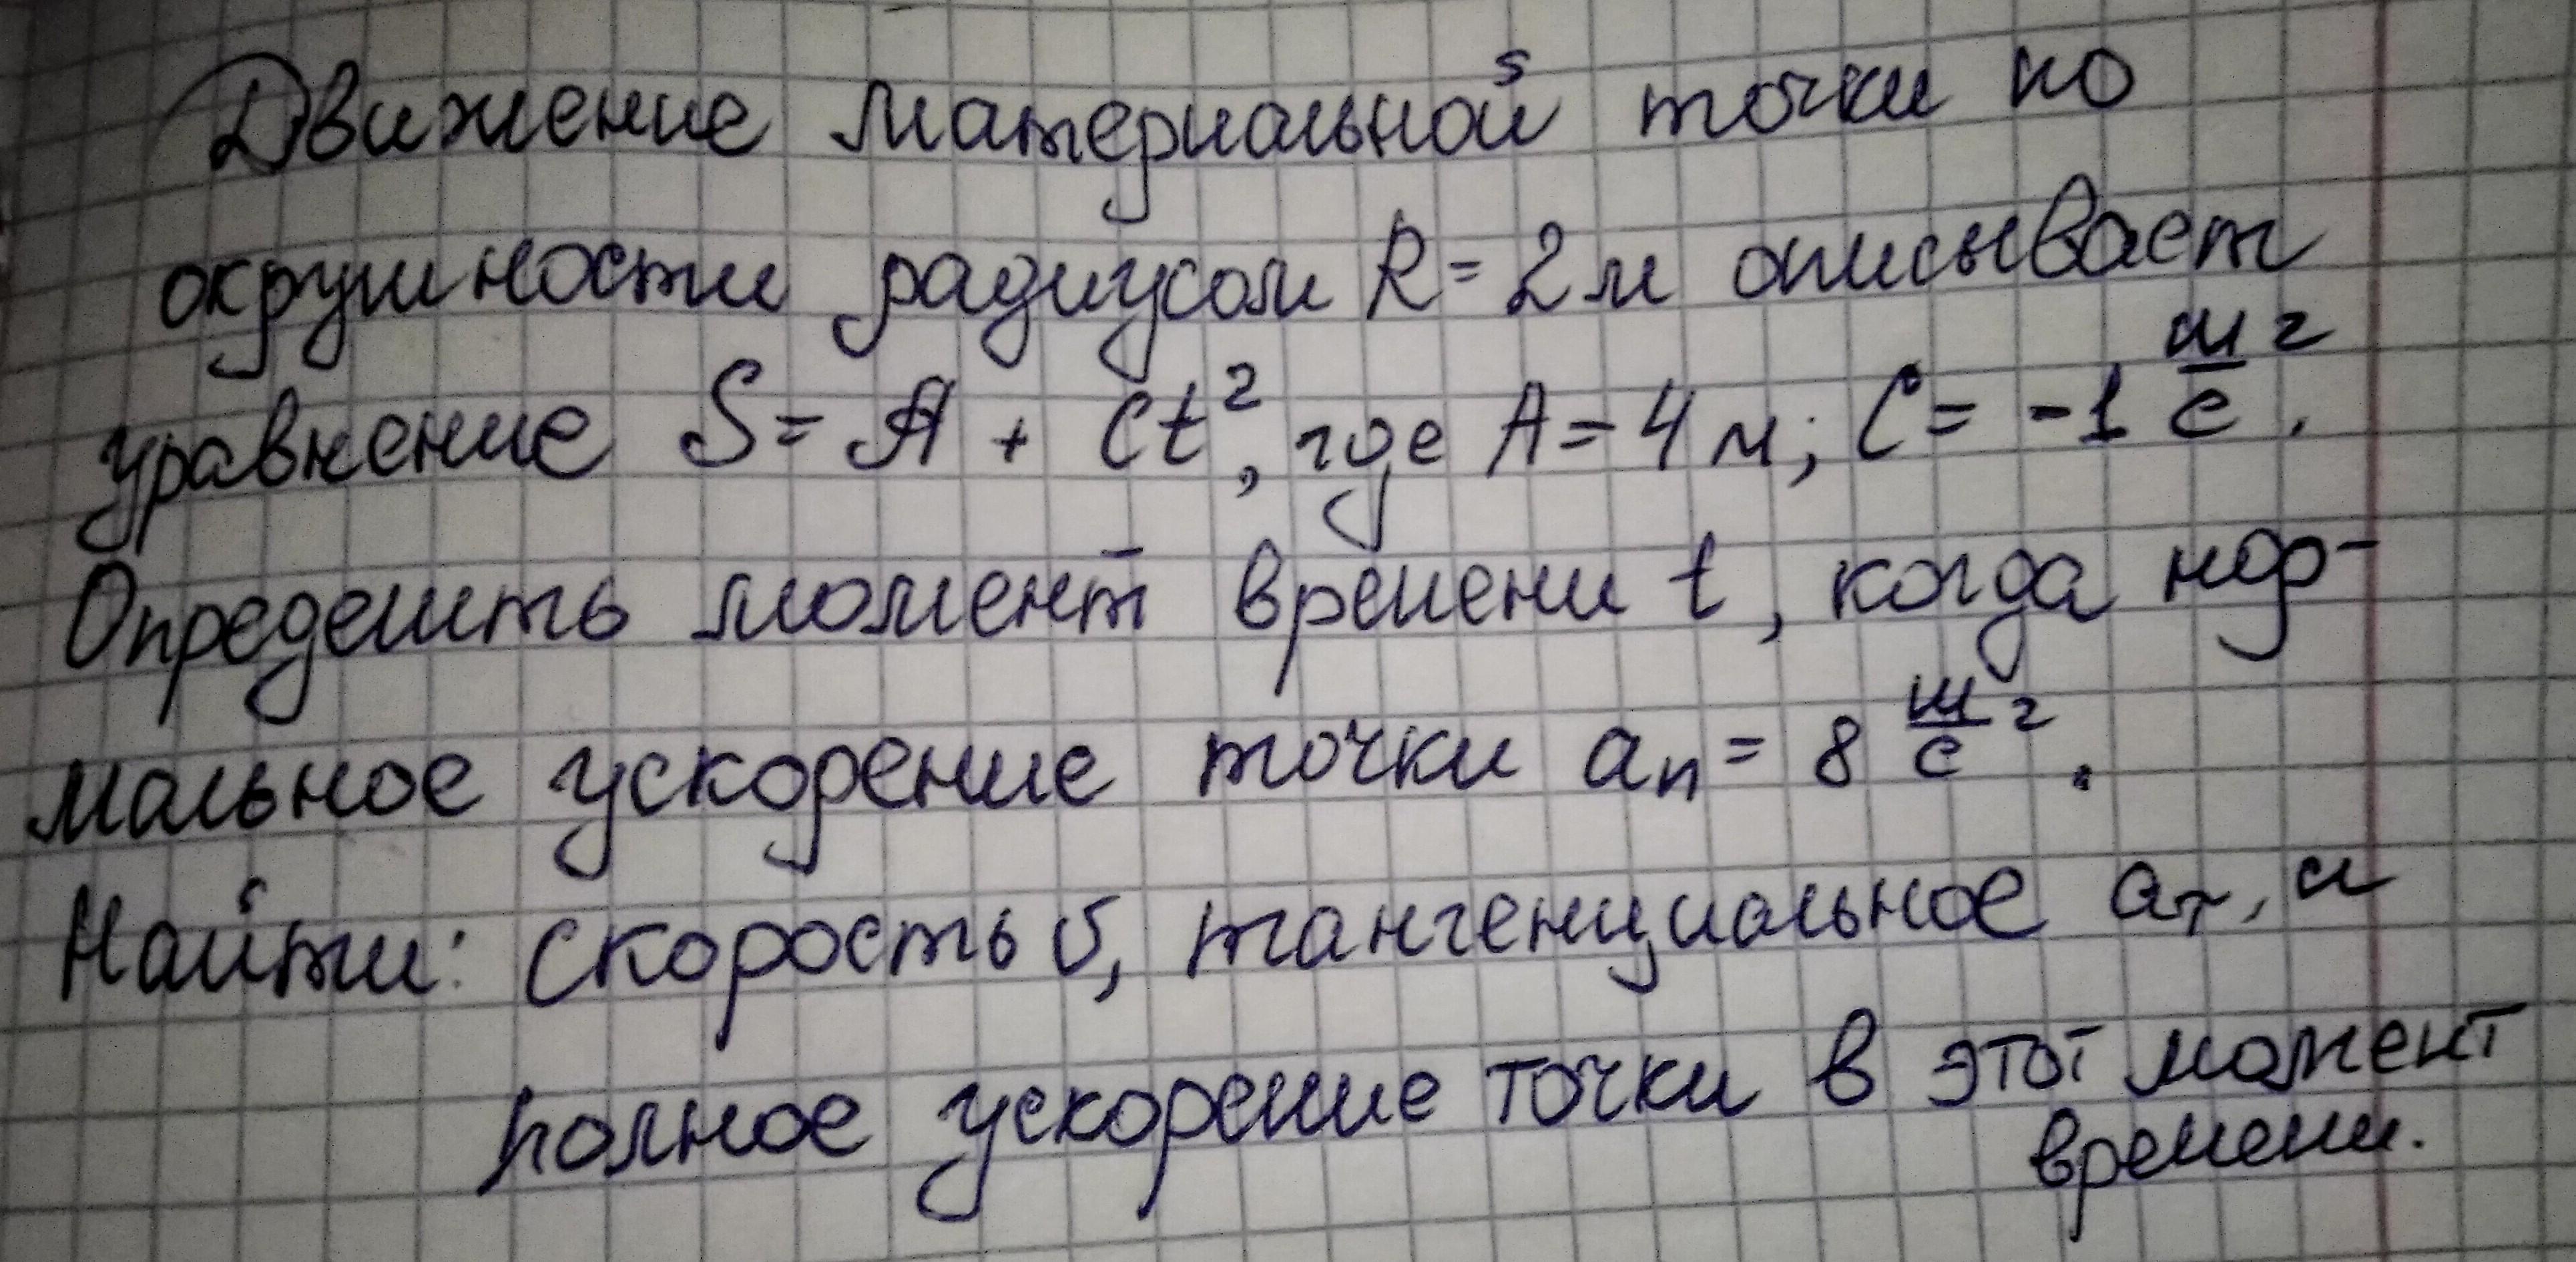 Движение материальной точки по
окружности радиусом R = 2 м описывает
уравнение S = A + Ct², где A = 4 м; C = -1 м/с².
Определить момент времени t, когда нор-
мальное ускорение точки aₙ = 8 м/с².
Найти: скорость υ, тангенциальное aτ, и
полное ускорение точки в этот момент
времени.